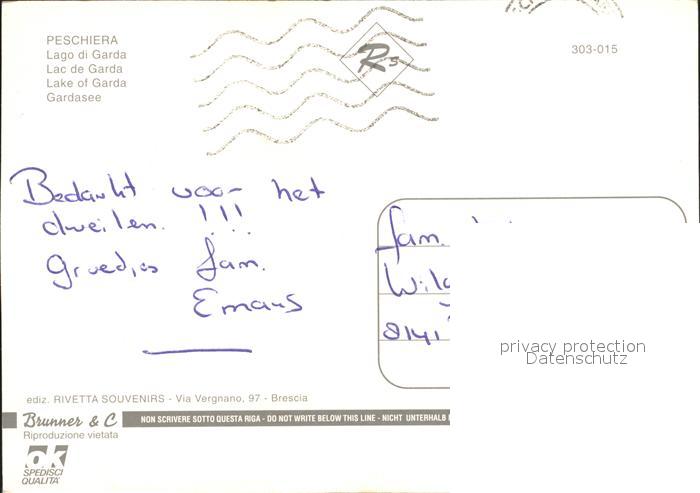 PESCHIERA
Lago di Garda
Lac de Garda
Lake of Garda
Gardasee
303-015
Bedankt voor het
dweilen. !!!
Groedjes fam.
Emaus
fam.
8141
privacy protection
Datenschutz
ediz. RIVETTA SOUVENIRS - Via Vergnano, 97 - Brescia
Brunner & C
NON SCRIVERE SOTTO QUESTA RIGA - DO NOT WRITE BELOW THIS LINE - NICHT UNTERHALB
Riproduzione vietata
ok
SPEDISCI
QUALITA'